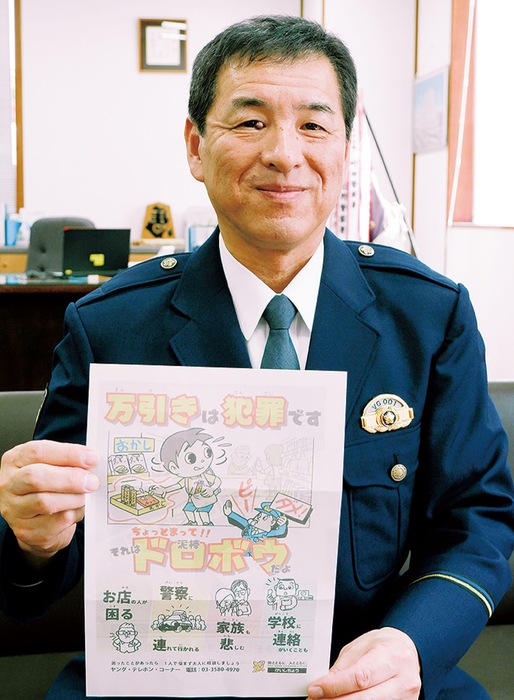 VG 001
万引きは犯罪です
おかし
ピー
ダメ!
ちょっとまって!!
それはドロボウだよ
泥棒
お店の人が困る
警察に連れて行かれる
家族も悲しむ
学校に連絡がいくことも
困ったことがあったら 1人で悩まず大人に相談しましょう
ヤング・テレホン・コーナー 電話:03-3580-4970